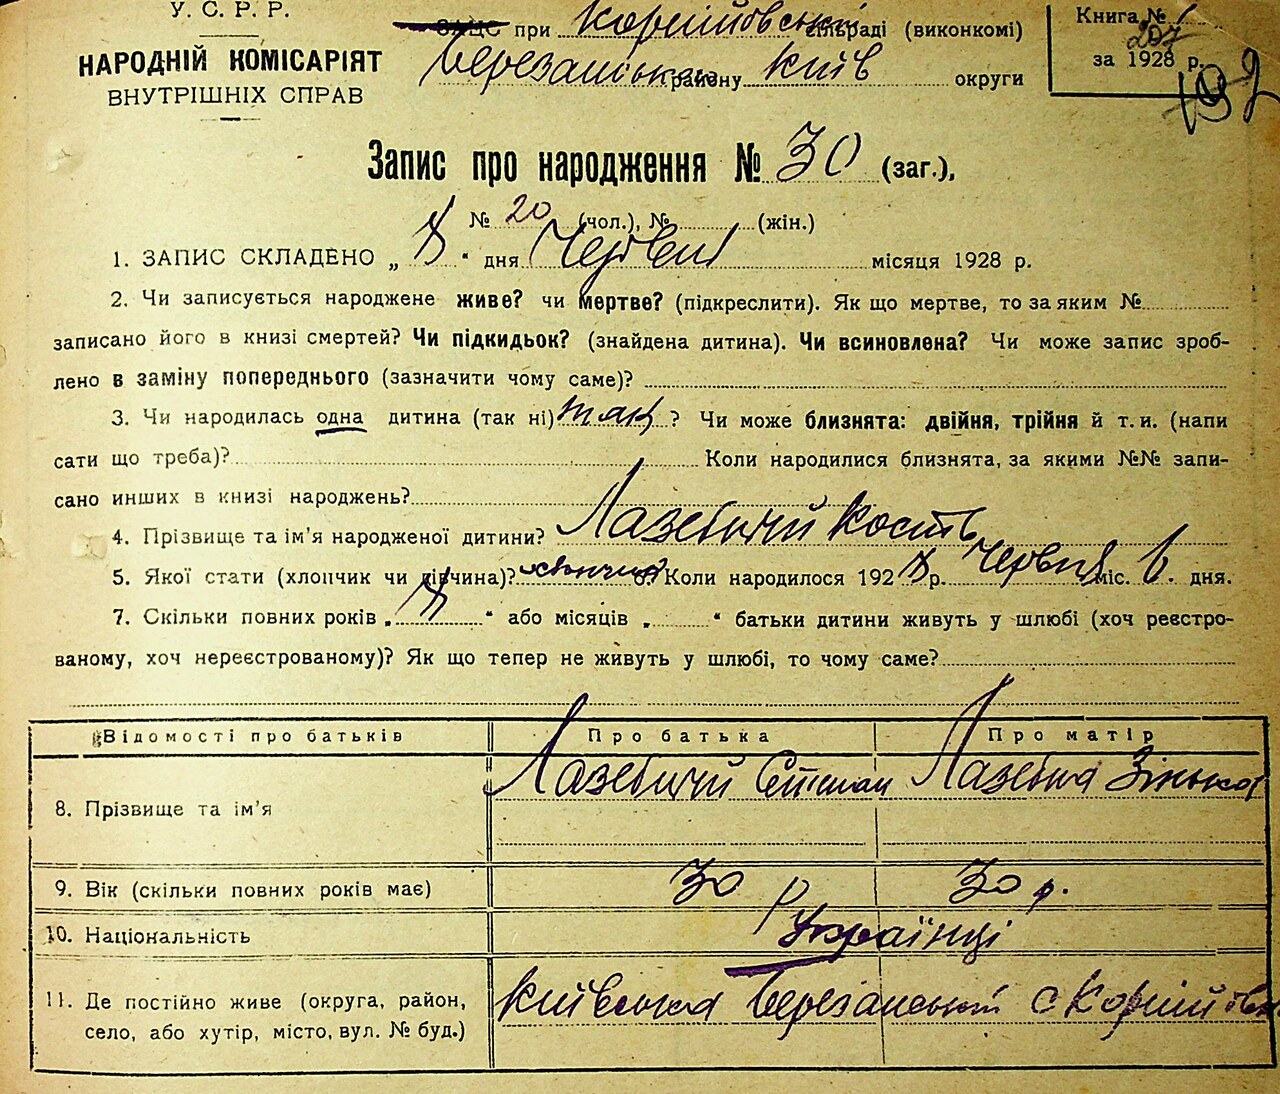 У. С. Р. Р.
НАРОДНІЙ КОМІСАРІЯТ
ВНУТРІШНІХ СПРАВ
ЗАГС при Корнійовській сільраді (виконкомі)
Березанському району Київ округи
Книга №
207
за 1928 р.
192
Запис про народження № 30 (заг.),
№ 20 (чол.), № (жін.)
1. ЗАПИС СКЛАДЕНО „ 8 “ дня Червня місяця 1928 р.
2. Чи записується народжене живе? чи мертве? (підкреслити). Як що мертве, то за яким №
записано його в книзі смертей? Чи підкидьок? (знайдена дитина). Чи всиновлена? Чи може запис зроб-
лено в заміну попереднього (зазначити чому саме)?
3. Чи народилась одна дитина (так ні) так ? Чи може близнята: двійня, трійня й т. и. (напи
сати що треба)? Коли народилися близнята, за якими №№ запи-
сано инших в книзі народжень?
4. Прізвище та ім’я народженої дитини? Лазебний Кость
5. Якої стати (хлопчик чи дівчина)? хлопчик 6. Коли народилося 1928 р. Червня міс. 6. дня.
7. Скільки повних років „ 8 “ або місяців „ “ батьки дитини живуть у шлюбі (хоч реєстро-
ваному, хоч нереєстрованому)? Як що тепер не живуть у шлюбі, то чому саме?
Відомості про батьків Про батька Про матір
8. Прізвище та ім’я Лазебний Степан Лазебна Зінька
9. Вік (скільки повних років має) 30 р 30 р.
10. Національність Українці
11. Де постійно живе (округа, район,
село, або хутір, місто, вул. № буд.)
Київська Березанський с Корнійовка